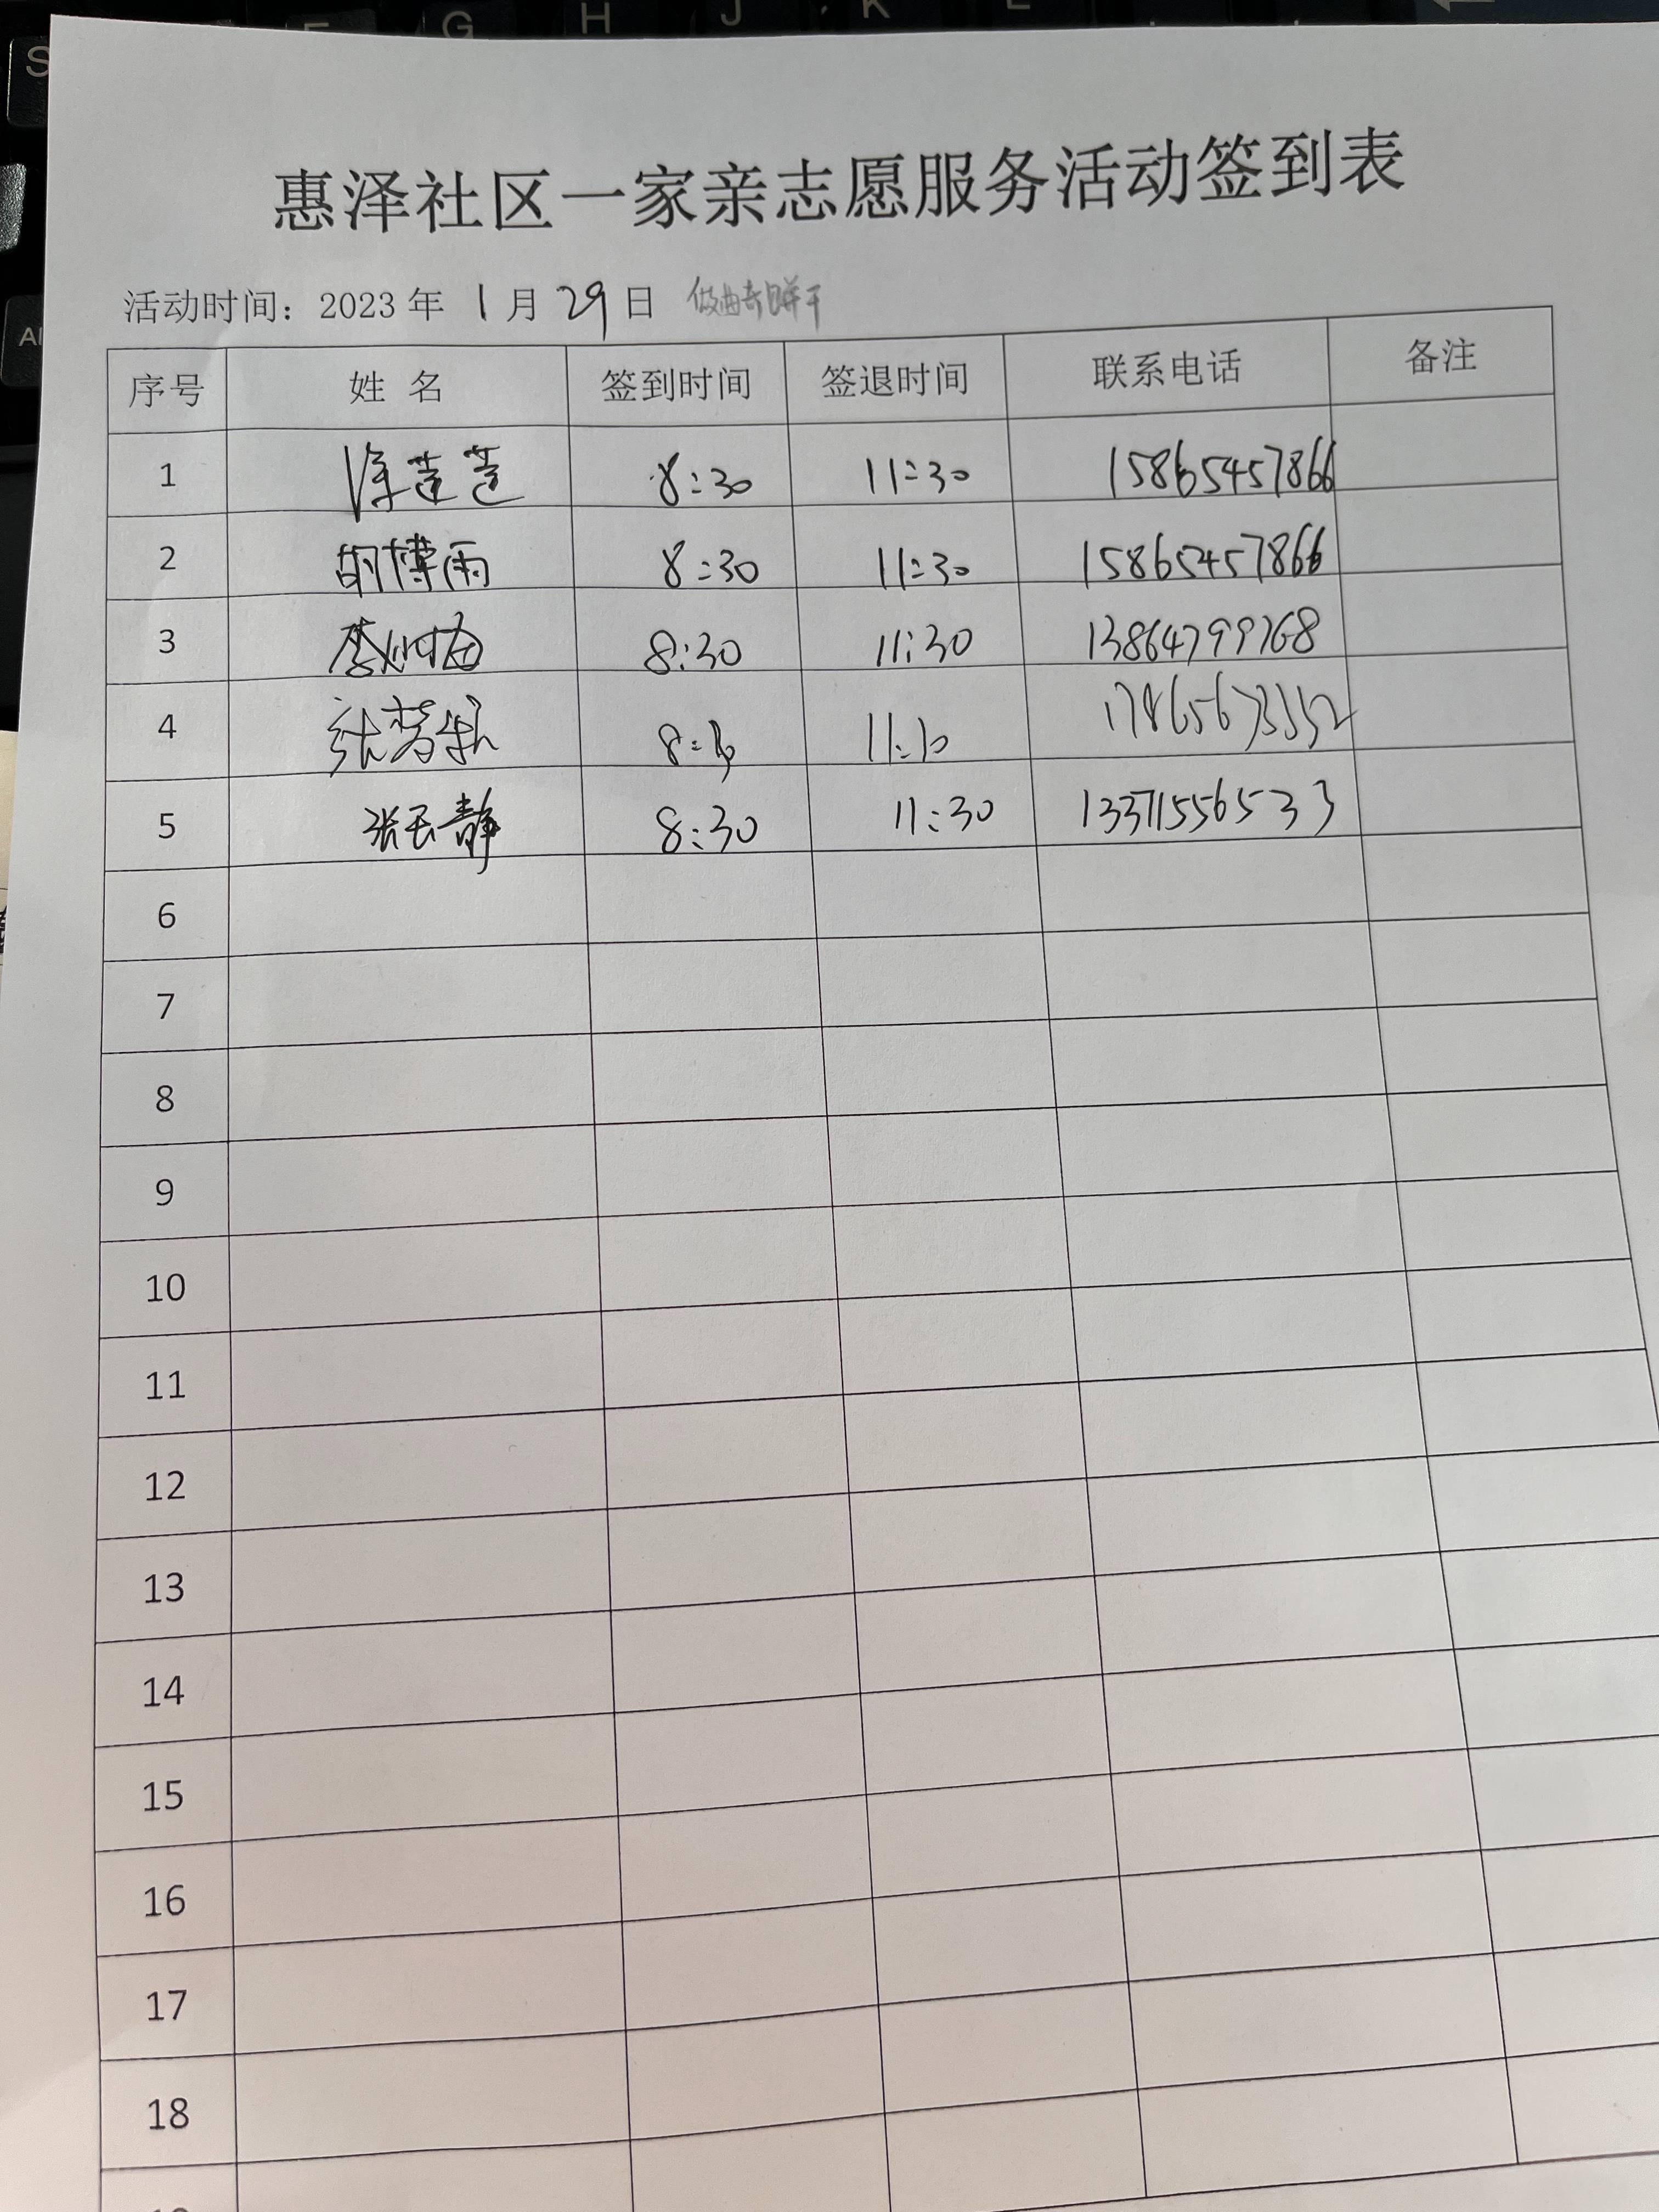 惠泽社区一家亲志愿服务活动签到表
活动时间：2023 年 1 月 29 日 做曲奇饼干
序号 姓 名 签到时间 签退时间 联系电话 备注
1 8:30 11:30 15865457866
2 博雨 8:30 11:30 15865457866
3 8:30 11:30 13864799768
4 张
5 张玉静 8:30 11:30 13371556533
6
7
8
9
10
11
12
13
14
15
16
17
18